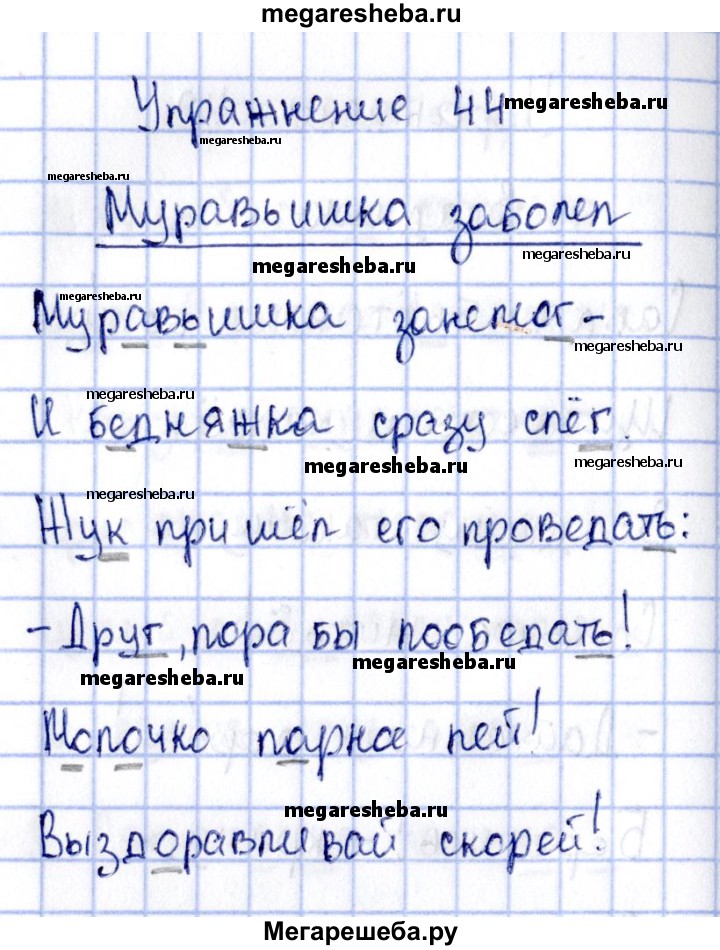 megaresheba.ru
Упражнение 44 megaresheba.ru
megaresheba.ru
megaresheba.ru
Муравьишка заболел
megaresheba.ru
megaresheba.ru
megaresheba.ru
Муравьишка занемог-
megaresheba.ru
megaresheba.ru
И бедняжка сразу слёг.
megaresheba.ru
megaresheba.ru
megaresheba.ru
Жук пришёл его проведать:
- Друг, пора бы пообедать!
megaresheba.ru
megaresheba.ru
Молочко парное пей!
megaresheba.ru
Выздоравливай скорей!
Мегарешеба.ру